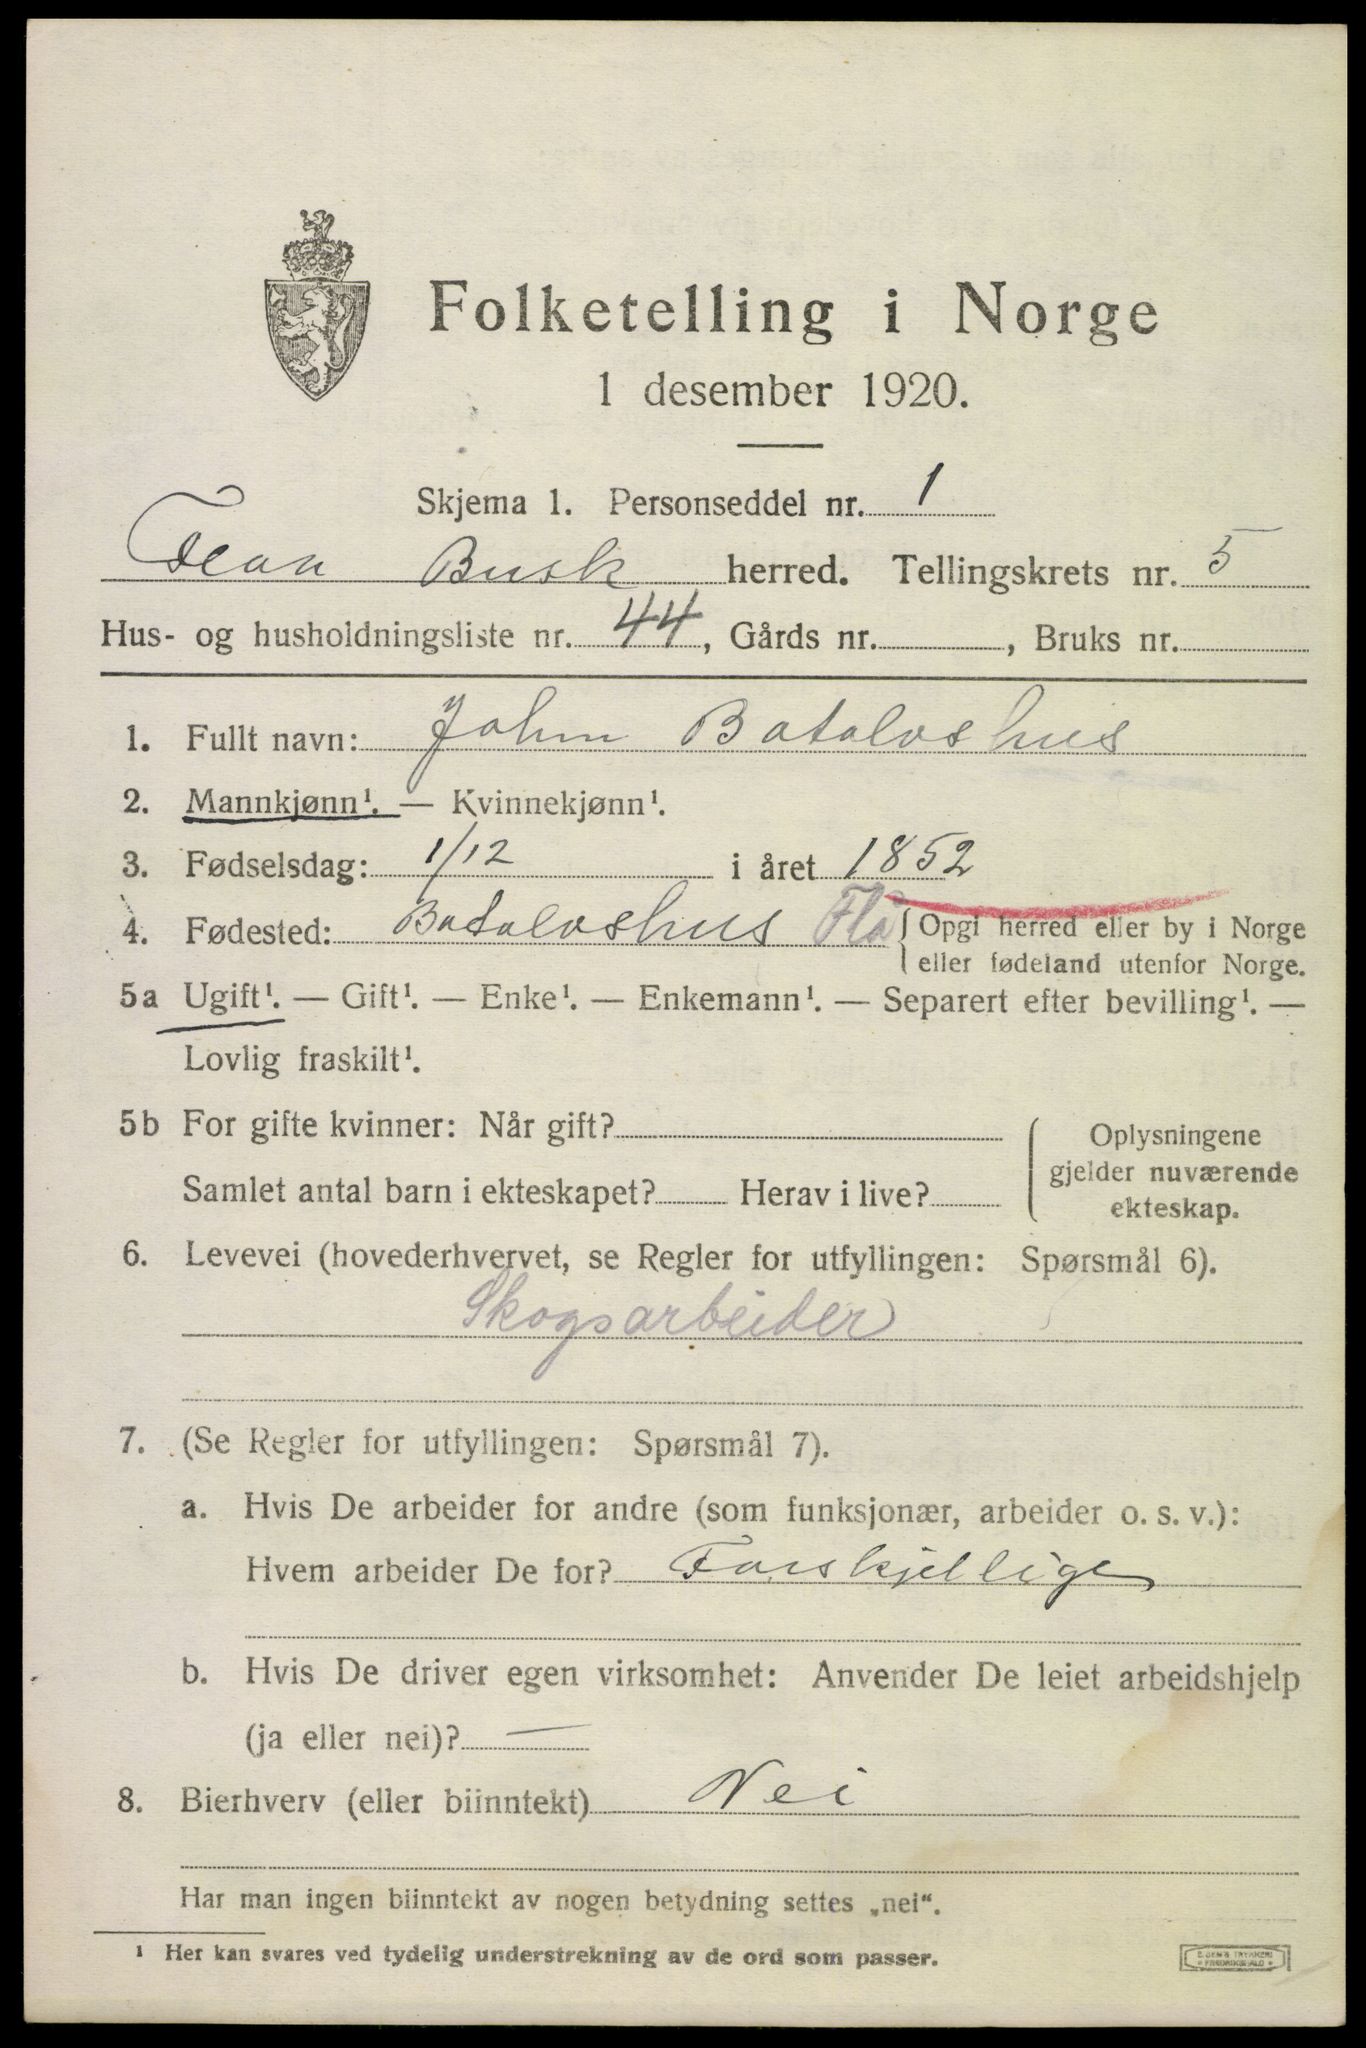 Folketelling i Norge
1 desember 1920.
Skjema 1. Personseddel nr. 1
Flaa Busk herred. Tellingskrets nr. 5
Hus- og husholdningsliste nr. 44, Gårds nr. , Bruks nr.
1. Fullt navn: John Bataloshus
2. Mannkjønn¹. — Kvinnekjønn¹.
3. Fødselsdag: 1/12 i året 1852
4. Fødested: Bataloshus Flå { Opgi herred eller by i Norge
eller fødeland utenfor Norge.
5a Ugift¹. — Gift¹. — Enke¹. — Enkemann¹. — Separert efter bevilling¹. —
Lovlig fraskilt¹.
5b For gifte kvinner: Når gift?
Samlet antal barn i ekteskapet? Herav i live?
Oplysningene
gjelder nuværende
ekteskap.
6. Levevei (hovederhvervet, se Regler for utfyllingen: Spørsmål 6).
Skogsarbeider
7. (Se Regler for utfyllingen: Spørsmål 7).
a. Hvis De arbeider for andre (som funksjonær, arbeider o. s. v.):
Hvem arbeider De for? Forskjellige
b. Hvis De driver egen virksomhet: Anvender De leiet arbeidshjelp
(ja eller nei)? —
8. Bierhverv (eller biinntekt) Nei
Har man ingen biinntekt av nogen betydning settes „nei“.
¹ Her kan svares ved tydelig understrekning av de ord som passer.